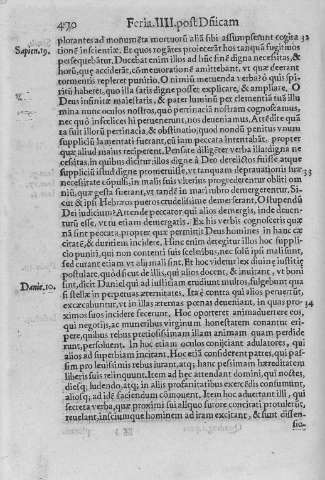 490 Feria. IIII. post Dñicam
plorantes ad monumẽta mortuorũ aliã sibi assumpserunt cogita 32
Sapien. 19. tionẽ inscientiæ. Et quos rogãtes proiecerãt hos tanquã fugitiuos
persequebãtur. Ducebat enim illos ad hũc finẽ digna necessitas, &
horũ, quæ acciderãt, cõmemorationẽ amittebant, vt quæ deerant
tormentis repleret punitio. O nimiũ metuenda verba! ô quis spiri
tũ haberet, quo illa satis digne posset explicare, & ampliare. O
Deus infinitæ maiestatis, & pater luminũ per clementiã tuã illu
mina nunc oculos nostros, quò pertinaciã nostram cognoscamus,
nec quò infœlices hi peruenerunt, nos deueniamus. Attẽdite quã
ta suit illorũ pertinacia, & obstinatio; quod nondũ penitus vnum
suppliciũ lamentati fuerant, cũ iam peccata intentabãt, propter
quæ aliud maius reciperent. Pensate diligẽter verba illa: digna ne
cessitas, in quibus dicitur illos digne à Deo derelictos fuisse atque
suppliciũ istud digne promeruisse, vt tanquam deprauationis suæ 33
necessitate cõpulsi, in malis suis vlterius progrederentur obliti om
niũ, quæ gesta fuerant, vt tandẽ in mari rubro demergerentur. Si-
cut & ipsi Hebræos pueros crudelissime demerserant. O stupendũ
Dei iudicium! Attende peccator qui alios demergis, inde deuen-
turũ esse, vt tu etiam demergaris. Ex his verbis cognoscetis quæ
nã sint peccata, propter quæ permittit Deus homines in hanc cæ
citatẽ, & duritiem incidere. Hinc enim detegitur illos hoc suppli-
cio puniri, qui non contenti suis sceleribus, nec solũ ipsi mali sunt,
sed curant etiam vt alij mali sint. Et hoc videtur lex diuinæ iustitiæ
postulare, quòd sicut de illis, qui alios docent, & inuitant, vt boni
Danie. 10. sint, dicit Daniel qui ad iustitiam erudiunt multos, fulgebunt qua
si stellæ in perpetuas æternitates, Ita è contra qui alios peruertũt,
excæcabuntur, vt in illas æternas pœnas deueniant, in quas pro- 34
ximos suos incidere fecerunt. Hoc oporteret animaduertere eos,
qui negotijs, ac muneribus virginum honestatem conantur eri-
pere, quibus rebus pretiosissimam illam animam quam perdide
runt, persoluunt. In hoc etiam oculos conijciant adulatores, qui
alios ad superbiam incitant. Hoc etiã considerent patres, qui pas-
sim pro leuissimis rebus iurant, atq; hanc pessimam hæreditatem
liberis suis relinquunt. Item ad hęc attendant domini, qui noctes,
diesq; ludendo, atq; in alijs prophanitatibus exercẽdis consumunt,
aliosq; ad idẽ faciendum cõmouent. Item hoc aduertant illi, qui
secreta verba, quæ proximi sui aliquo furore concitati protulerũt,
reuelant, insciumque hominem ad iram excitant, & sunt dissen-
sio-